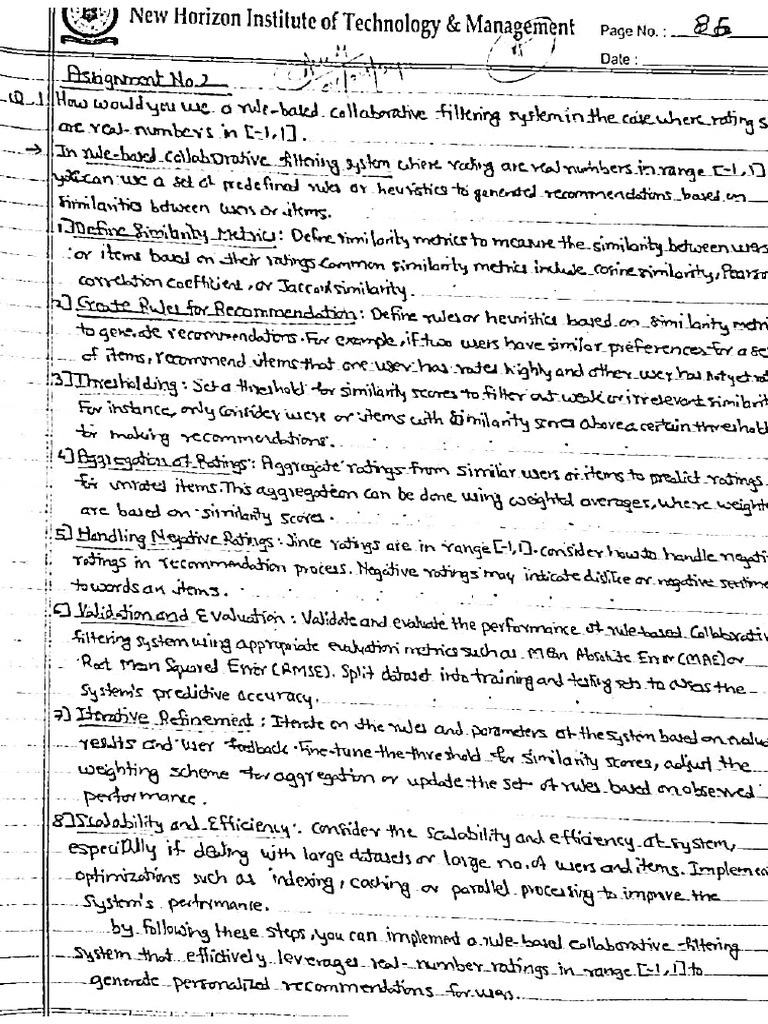 New Horizon Institute of Technology & Management
Page No. : 86
Date :
Assignment No.2
Q.1 How would you use a rule-based collaborative filtering system in the case where rating s
are real-numbers in [-1,1].
→ In rule-based collaborative filtering system where rating are real numbers in range [-1,1]
you can use a set of predefined rules or heuristics to generated recommendations based on
similarities between users or items.
1] Define Similarity Metrics: Define similarity metrics to measure the similarity between users
or items based on their ratings common similarity metrics include cosine similarity, Pearso
correlation coefficient, or Jaccard similarity.
2] Create Rules for Recommendation: Define rules or heuristics based on similarity metri
to generate recommendations. For example, if two users have similar preferences for a se
of items, recommend items that one user has rates highly and other user has not yet rat
3] Thresholding: Set a threshold for similarity scores to filter out weak or irrelevant similarit
For instance, only consider users or items with similarity scores above a certain threshold
for making recommendations.
4] Aggregation of Ratings: Aggregate ratings from similar users or items to predict ratings
for unrated items. This aggregation can be done using weighted averages, where weights
are based on similarity scores.
5] Handling Negative Ratings: Since ratings are in range [-1,1]. consider how to handle negati
ratings in recommendation process. Negative ratings may indicate dislike or negative sentime
towords an items.
6] Validation and Evaluation: Validate and evaluate the performance of rule-based Collaborativ
filtering system using appropriate evaluation metrics such as Mean Absolute Error (MAE) or
Root Mean Squared Error (RMSE). Split dataset into training and testing sets to assess the
System's predictive accuracy.
7] Iterative Refinement: Iterate on the rules and parameters of the system based on evalua
results and user feedback. Fine-tune the threshold for similarity scores, adjust the
weighting scheme for aggregation or update the set of rules based on observed
performance.
8] Scalability and Efficiency: Consider the scalability and efficiency of system,
especially if dealing with large datasets or large no. of users and items. Implement
optimizations such as indexing, caching or parallel processing to improve the
System's performance.
by following these steps, you can implement a rule-based collaborative filtering
system that effictively leverages real-number ratings in range [-1,1] to
generate personalized recommendations for users.